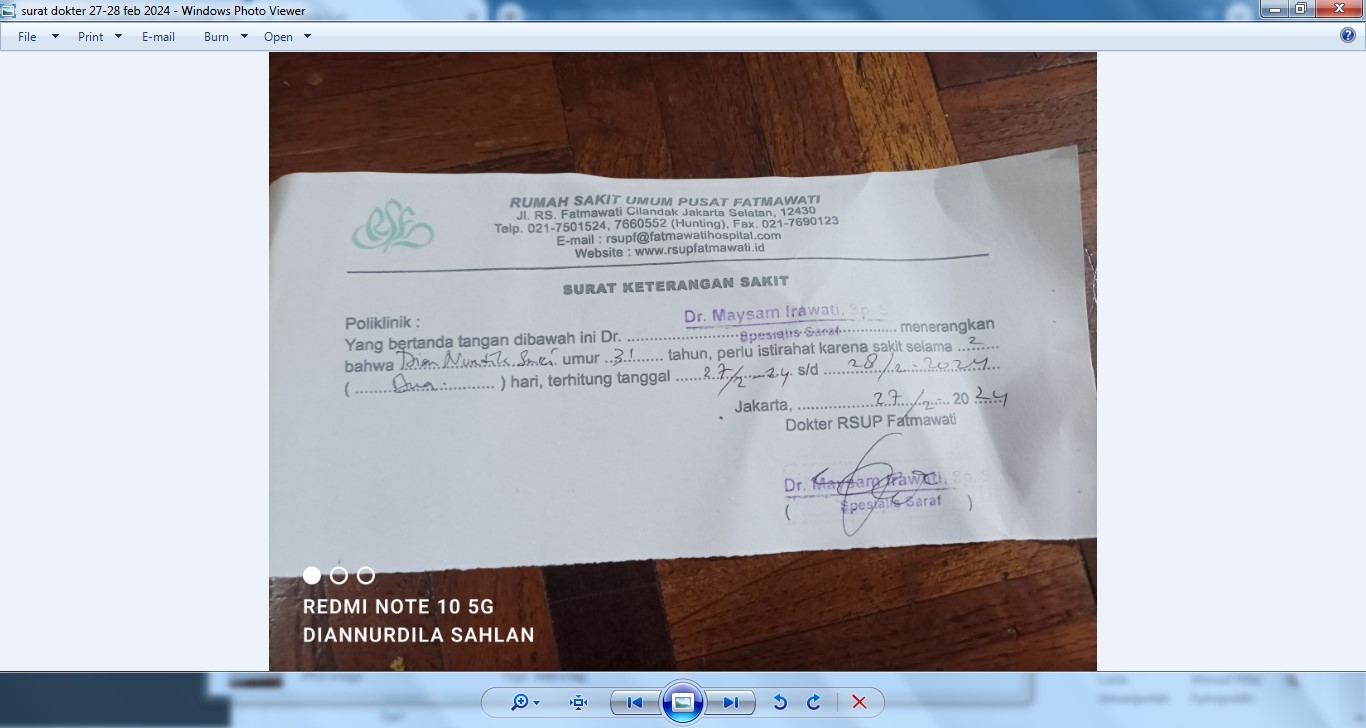 surat dokter 27-28 feb 2024 - Windows Photo Viewer
File Print E-mail Burn Open
RUMAH SAKIT UMUM PUSAT FATMAWATI
Jl. RS. Fatmawati Cilandak Jakarta Selatan, 12430
Telp. 021-7501524, 7660552 (Hunting), Fax. 021-7690123
E-mail : rsupf@fatmawatihospital.com
Website : www.rsupfatmawati.id
SURAT KETERANGAN SAKIT
Poliklinik :
Dr. Maysam Irawati, Sp. S
Yang bertanda tangan dibawah ini Dr. ........ menerangkan
Spesialis Saraf
bahwa Dian umur ..31...... tahun, perlu istirahat karena sakit selama ..2..
( ....Dua.... ) hari, terhitung tanggal ....27/2-24. s/d ....28/2-2024
Jakarta, ........27/2-... 20 24
Dokter RSUP Fatmawati
Dr. Maysam Irawati, Sp. S
Spesialis Saraf
( )
REDMI NOTE 10 5G
DIANNURDILA SAHLAN